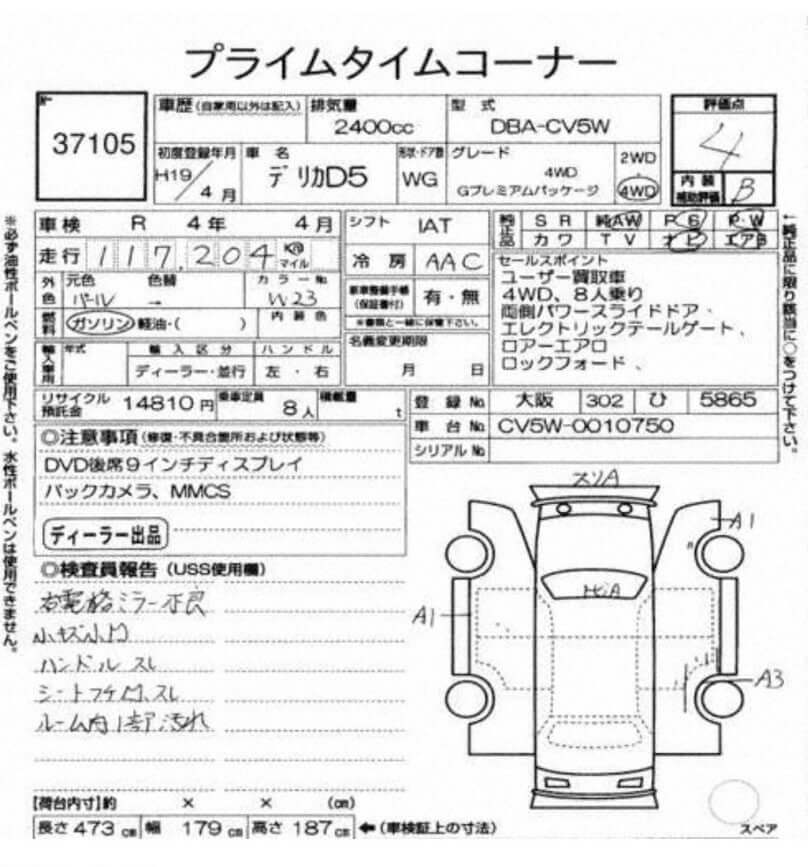 プライムタイムコーナー
37105
車歴 (自家用以外は記入) 排気量 型式 評価点
2400cc DBA-CV5W 4
初度登録年月 車名 形状・ドア数 グレード 2WD
H19/4月 デリカD5 WG 4WD Gプレミアムパッケージ 4WD
内装補助評価 B
車検 R 4年 4月 シフト IAT
純正品 SR 純AW PS P・W
カワ TV ナビ エアB
走行 117,204 Km マイル 冷房 AAC
外色 元色 色替 カラーNo
パール → W23
新車整備手帳(保証書付) 有・無
※書類と一緒に保管下さい。
燃料 ガソリン・軽油・( ) 内装色
名義変更期限
月 日
輸入車用 年式 輸入区分 ハンドル
ディーラー・並行 左・右
セールスポイント
ユーザー買取車
4WD、8人乗り
両側パワースライドドア、
エレクトリックテールゲート、
ロアーエアロ
ロックフォード、
リサイクル預託金 14810円 乗車定員 8人 積載量 t
登録No. 大阪 302 ひ 5865
車台No. CV5W-0010750
シリアルNo.
◎注意事項 (修復・不具合箇所および状態等)
DVD後席9インチディスプレイ
バックカメラ、MMCS
ディーラー出品
◎検査員報告 (USS使用欄)
右電格ミラー不良
小キズ小凹
ハンドル スレ
シートコゲ凹、スレ
ルーム内1部汚れ
スリA
A1
トビA
A1
A3
スペア
[荷台内寸]約 × × (cm)
長さ 473 cm 幅 179 cm 高さ 187 cm ←(車検証上の寸法)
※必ず油性ボールペンをご使用下さい。水性ボールペンは使用できません。
←純正品に限り該当に○をつけて下さい。